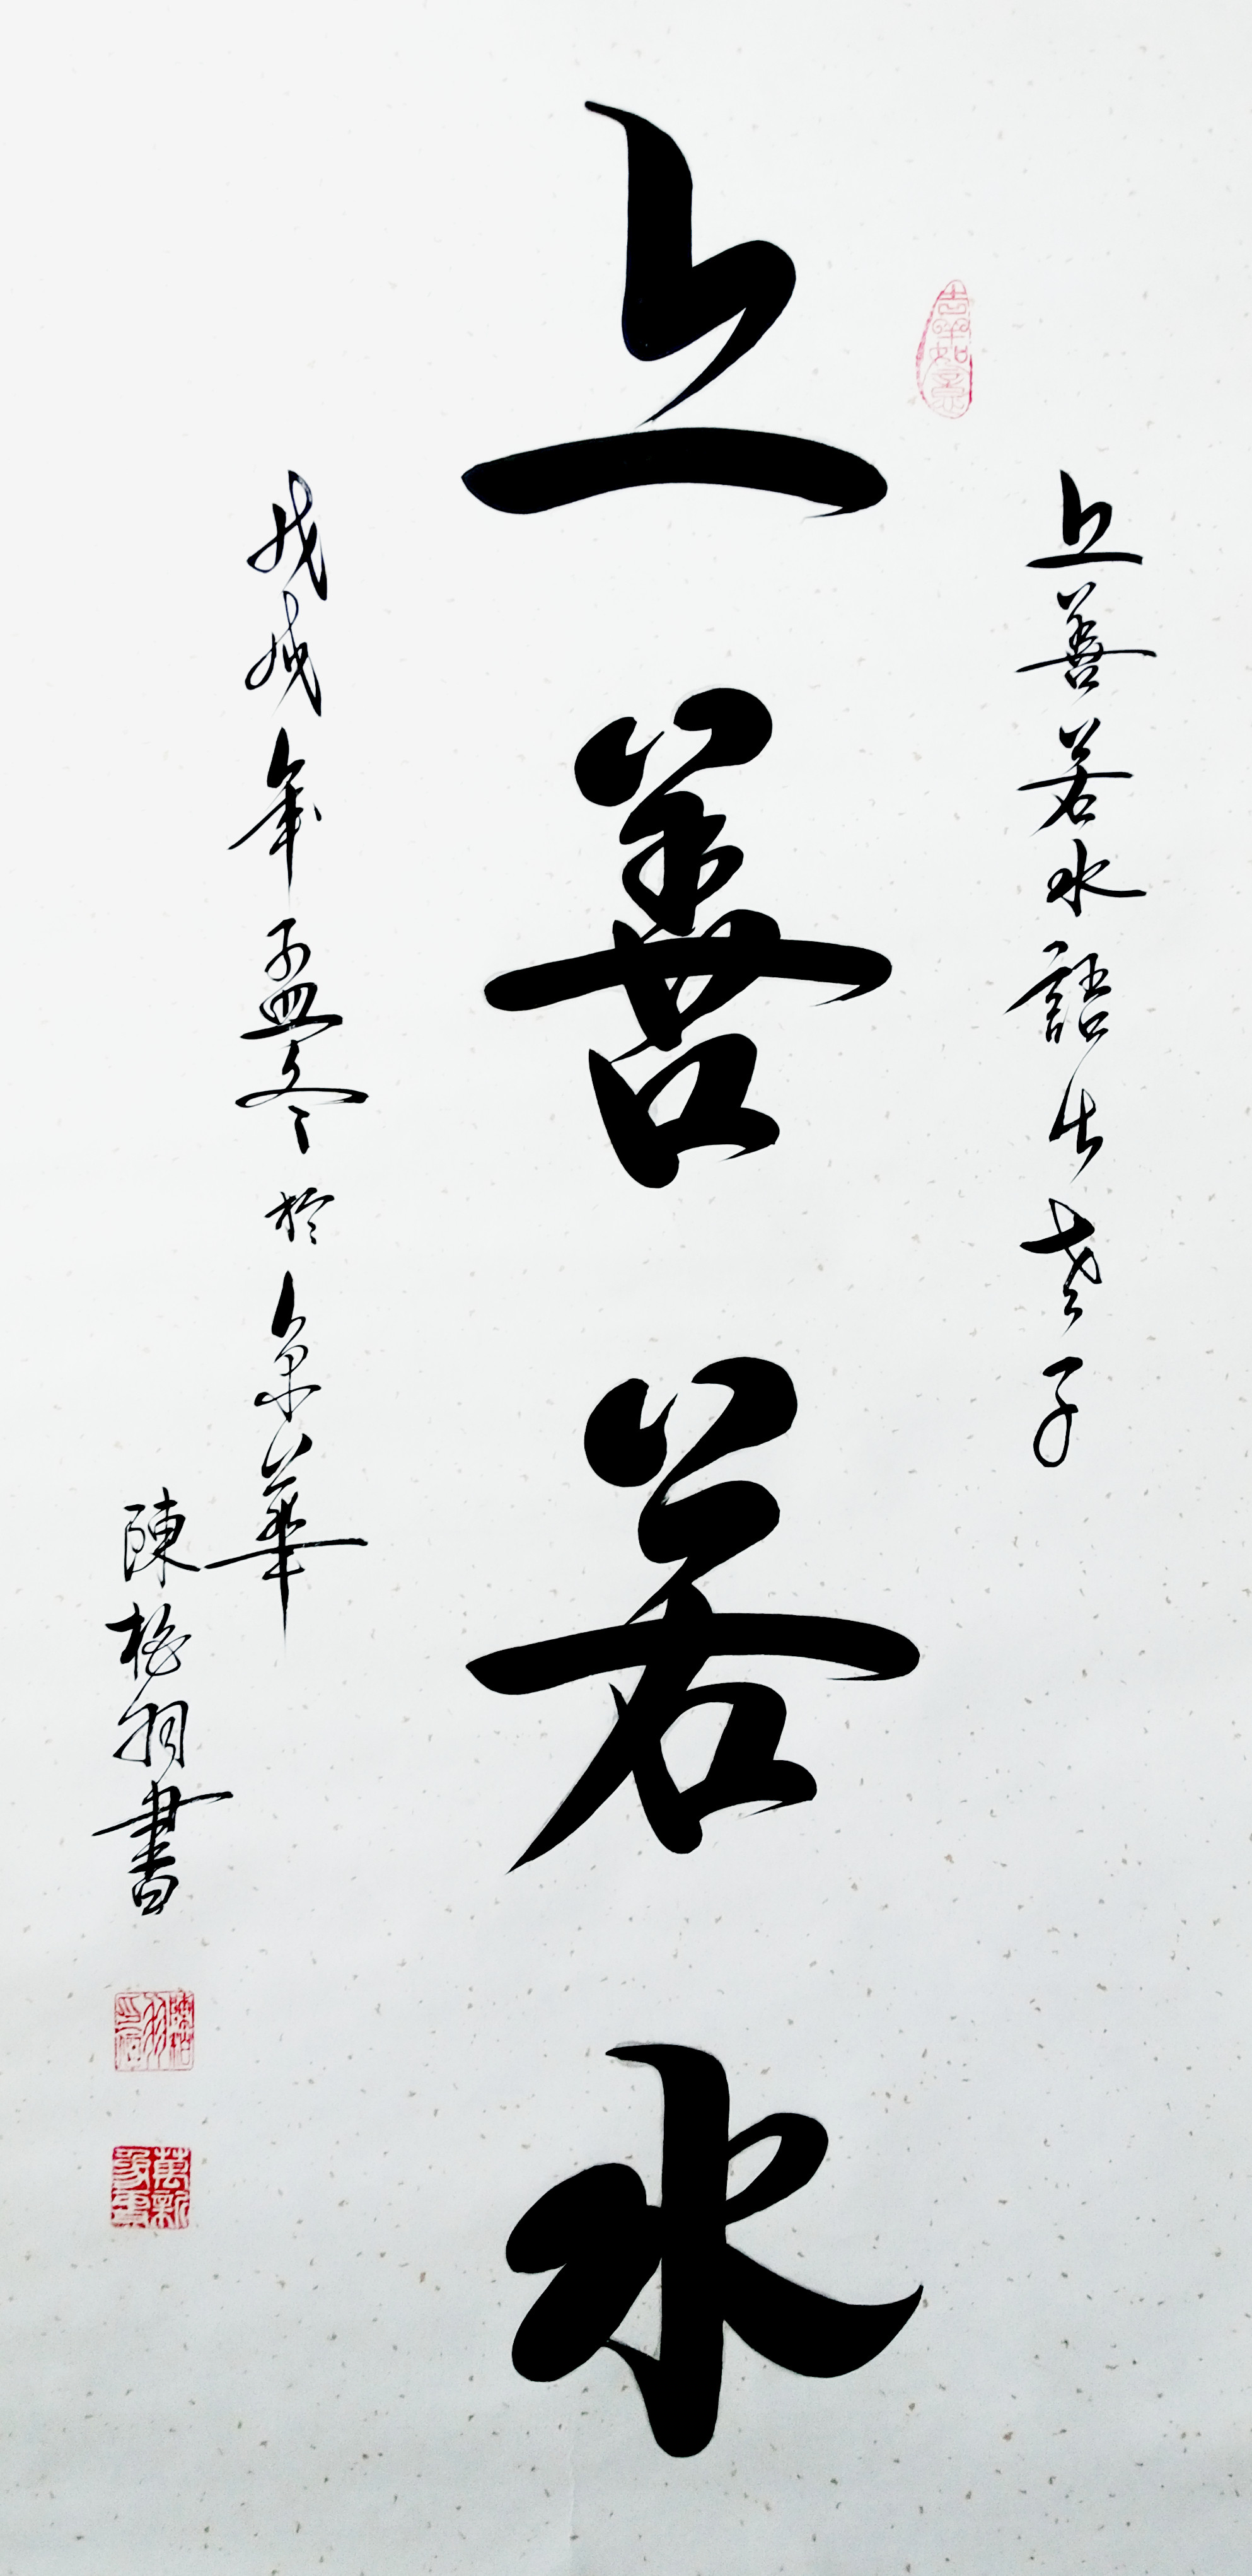 上善若水語出老子
吉羊如意
上善若水
戊戌年孟冬於京華
陳羽書